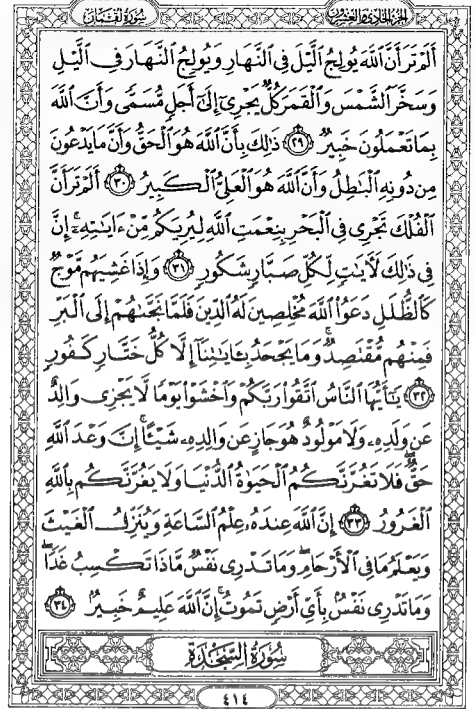 سُورَةُ لُقْمَان
الجُزءُ الحَادِي وَالعِشْرُونَ
أَلَمْ تَرَ أَنَّ ٱللَّهَ يُولِجُ ٱلَّيْلَ فِى ٱلنَّهَارِ وَيُولِجُ ٱلنَّهَارَ فِى ٱلَّيْلِ
وَسَخَّرَ ٱلشَّمْسَ وَٱلْقَمَرَ كُلٌّ يَجْرِىٓ إِلَىٰٓ أَجَلٍ مُّسَمًّى وَأَنَّ ٱللَّهَ
بِمَا تَعْمَلُونَ خَبِيرٌ ٢٩ ذَٰلِكَ بِأَنَّ ٱللَّهَ هُوَ ٱلْحَقُّ وَأَنَّ مَا يَدْعُونَ
مِن دُونِهِ ٱلْبَٰطِلُ وَأَنَّ ٱللَّهَ هُوَ ٱلْعَلِىُّ ٱلْكَبِيرُ ٣٠ أَلَمْ تَرَ أَنَّ
ٱلْفُلْكَ تَجْرِى فِى ٱلْبَحْرِ بِنِعْمَتِ ٱللَّهِ لِيُرِيَكُم مِّنْ ءَايَٰتِهِۦٓ ۚ إِنَّ
فِى ذَٰلِكَ لَءَايَٰتٍ لِّكُلِّ صَبَّارٍ شَكُورٍ ٣١ وَإِذَا غَشِيَهُم مَّوْجٌ
كَٱلظُّلَلِ دَعَوُا۟ ٱللَّهَ مُخْلِصِينَ لَهُ ٱلدِّينَ فَلَمَّا نَجَّىٰهُمْ إِلَى ٱلْبَرِّ
فَمِنْهُم مُّقْتَصِدٌ ۚ وَمَا يَجْحَدُ بِـَٔايَٰتِنَآ إِلَّا كُلُّ خَتَّارٍ كَفُورٍ
٣٢ يَٰٓأَيُّهَا ٱلنَّاسُ ٱتَّقُوا۟ رَبَّكُمْ وَٱخْشَوْا۟ يَوْمًا لَّا يَجْزِى وَالِدٌ
عَن وَلَدِهِۦ وَلَا مَوْلُودٌ هُوَ جَازٍ عَن وَالِدِهِۦ شَيْـًٔا ۚ إِنَّ وَعْدَ ٱللَّهِ
حَقٌّ ۖ فَلَا تَغُرَّنَّكُمُ ٱلْحَيَوٰةُ ٱلدُّنْيَا وَلَا يَغُرَّنَّكُم بِٱللَّهِ
ٱلْغَرُورُ ٣٣ إِنَّ ٱللَّهَ عِندَهُۥ عِلْمُ ٱلسَّاعَةِ وَيُنَزِّلُ ٱلْغَيْثَ
وَيَعْلَمُ مَا فِى ٱلْأَرْحَامِ ۖ وَمَا تَدْرِى نَفْسٌ مَّاذَا تَكْسِبُ غَدًا ۖ
وَمَا تَدْرِى نَفْسٌۢ بِأَىِّ أَرْضٍ تَمُوتُ ۚ إِنَّ ٱللَّهَ عَلِيمٌ خَبِيرٌۢ ٣٤
سُورَةُ السَّجْدَةِ
٤١٤